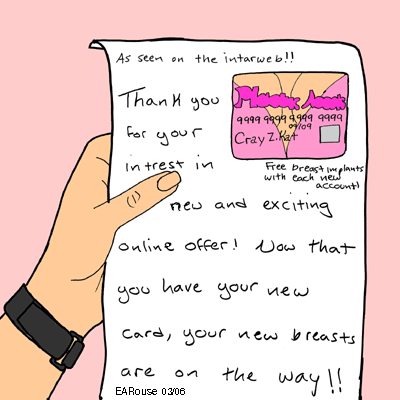 As seen on the intarweb!!
Thank you
for your
intrest in
9999 9999 9999 9999
09/09
Cray Z. Kat
Free breast implants
with each new
account!
new and exciting
online offer! Now that
you have your new
card, your new breasts
are on the way!!
EARouse 03/06